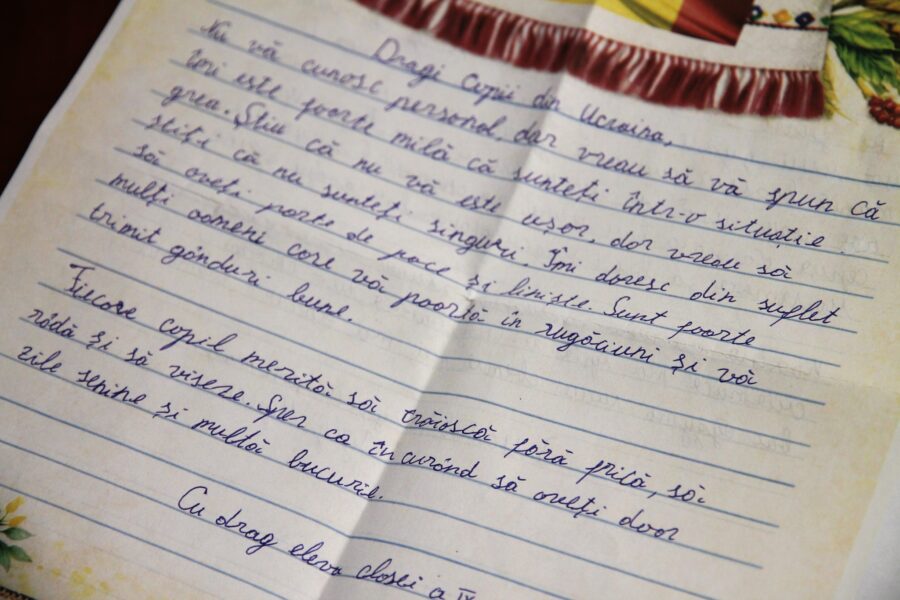 Dragi Copii din Ucraina,
Nu vă cunosc personal, dar vreau să vă spun că
îmi este foarte milă că sunteți într-o situație
grea. Știu că nu vă este ușor, dar vreau să
știți că nu sunteți singuri. Îmi doresc din suflet
să aveți parte de pace și liniște. Sunt foarte
mulți oameni care vă poartă în rugăciuni și vă
trimit gânduri bune.
Fiecare copil merită să trăiască fără frică, să
râdă și să viseze. Sper ca în curând să aveți doar
zile senine și multă bucurie.
Cu drag eleva clasei a IV